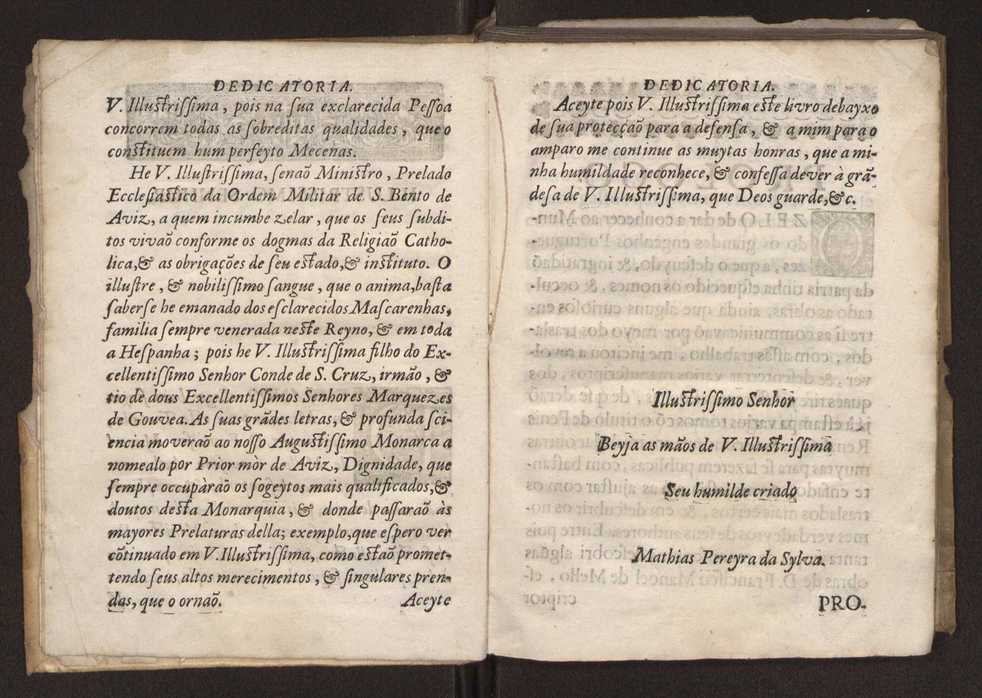 DEDICATORIA.
V. Illustrissima, pois na sua exclarecida Pessoa
concorrem todas as sobreditas qualidades, que o
constituem hum perfeyto Mecenas.
He V. Illustrissima, senaõ Ministro, Prelado
Ecclesiastico da Ordem Militar de S. Bento de
Aviz, a quem incumbe zelar, que os seus subdi-
tos vivaõ conforme os dogmas da Religiaõ Catho-
lica, & as obrigações de seu estado, & instituto. O
illustre, & nobilissimo sangue, que o anima, basta
saberse he emanado dos esclarecidos Mascarenhas,
familia sempre venerada neste Reyno, & em toda
a Hespanha; pois he V. Illustrissima filho do Ex-
cellentissimo Senhor Conde de S. Cruz, irmão, &
tio de dous Excellentissimos Senhores Marquezes
de Gouvea. As suas grãdes letras, & profunda sci-
encia moveraõ ao nosso Augustissimo Monarca a
nomealo por Prior mòr de Aviz, Dignidade, que
sempre occupàraõ os sogeytos mais qualificados, &
doutos desta Monarquia, & donde passaraõ às
mayores Prelaturas della; exemplo, que espero ver
cõtinuado em V. Illustrissima, como estaõ promet-
tendo seus altos merecimentos, & singulares pren-
das, que o ornaõ.
Aceyte
DEDICATORIA.
Aceyte pois V. Illustrissima este livro debayxo
de sua protecçaõ para a defensa, & a mim para o
amparo me continue as muytas honras, que a mi-
nha humildade reconhece, & confessa dever à grã-
desa de V. Illustrissima, que Deos guarde, &c.
Illustrissimo Senhor
Beyja as mãos de V. Illustrissima
Seu humilde criado
Mathias Pereyra da Sylva.
PRO-